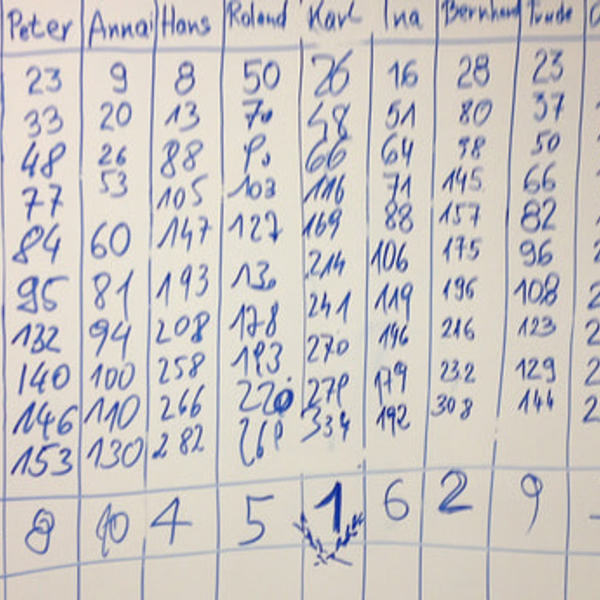 Peter Anna Hans Roland Karl Ina Bernhard Trude
23 9 8 50 26 16 28 23
33 20 13 70 48 51 80 37
48 26 88 90 66 64 98 50
77 53 105 103 116 71 145 66
84 60 147 127 169 88 157 82
95 81 193 130 214 106 175 96
132 94 208 178 241 119 196 108
140 100 258 193 270 146 216 123
146 110 266 220 279 179 232 129
153 130 282 269 334 192 308 144
8 10 4 5 1 6 2 9